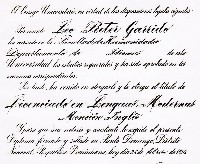 El Consejo Universitario, en virtud de las disposiciones legales vigentes,
Por cuanto Leo Porter Garrido
ha cursado en la Facultad de Humanidades
Departamento de Idiomas de esta
Universidad los estudios requeridos y ha sido aprobado en los
exámenes correspondientes.
Por tanto, ha venido en otorgarle y le otorga el título de
Licenciado en Lenguas Modernas
Mención Inglés
Y para que sea notorio y acreditado le expide el presente
Diploma firmado y sellado en Santo Domingo, Distrito
Nacional, República Dominicana, hoy día 28 de